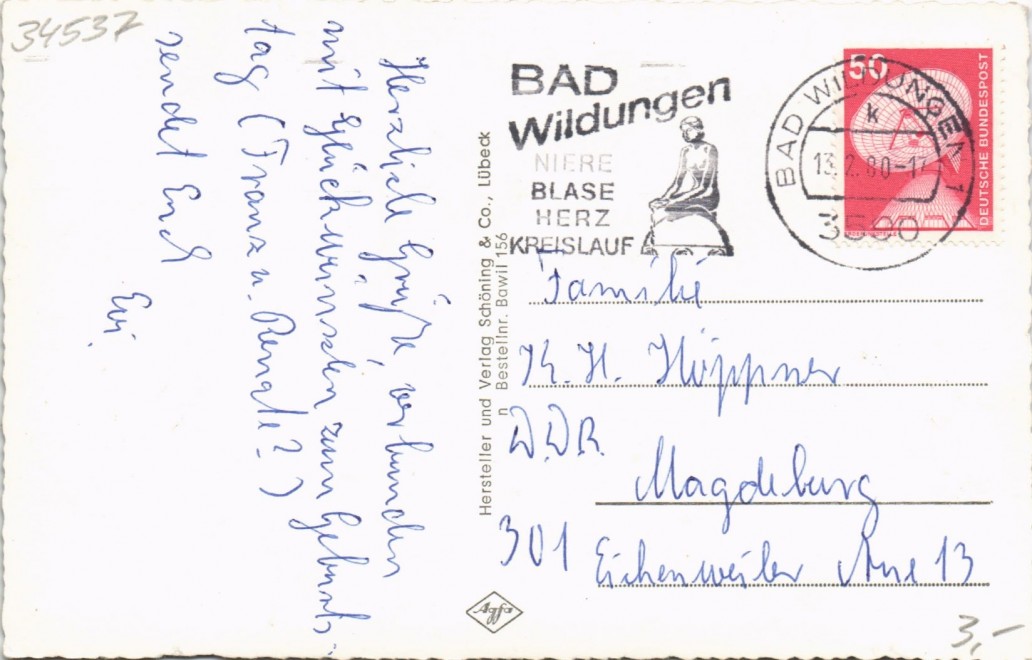 34537
Herzliche Grüße verbunden
mit Glückwünschen zum Geburts-
tag (Franz u. Renate?)
sendet Euch
Evi.
Hersteller und Verlag Schöning & Co., Lübeck
n Bestellnr. Bawil 156
Agfa
BAD
Wildungen
NIERE
BLASE
HERZ
KREISLAUF
BAD WILDUNGEN 1
k
13.2.80-17
3590
50
DEUTSCHE BUNDESPOST
Familie
K. H. Höppner
DDR.
Magdeburg
301 Eichenweiler 13
3,-